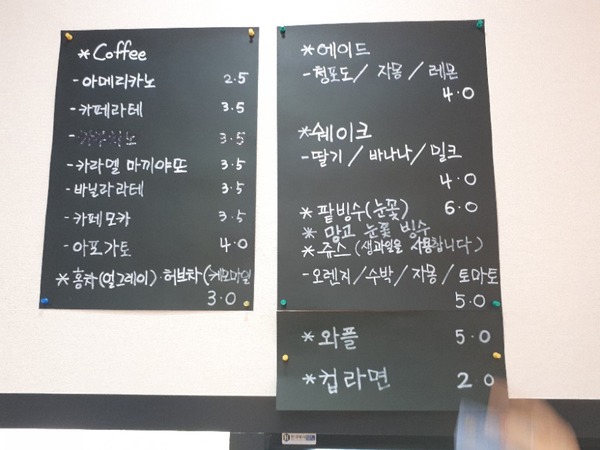 *Coffee
-아메리카노 2.5
-카페라테 3.5
- 3.5
-카라멜 마끼야또 3.5
-바닐라라테 3.5
-카페모카 3.5
-아포가토 4.0
*홍차(얼그레이)·허브차(케모마일
3.0
*에이드
-청포도/ 자몽/ 레몬
4.0
*쉐이크
-딸기/ 바나나/ 밀크
4.0
*팥빙수(눈꽃) 6.0
*망고 눈꽃 빙수
*쥬스(생과일을 사용합니다)
-오렌지/수박/자몽/토마토
5.0
*와플 5.0
*컵라면 2.0